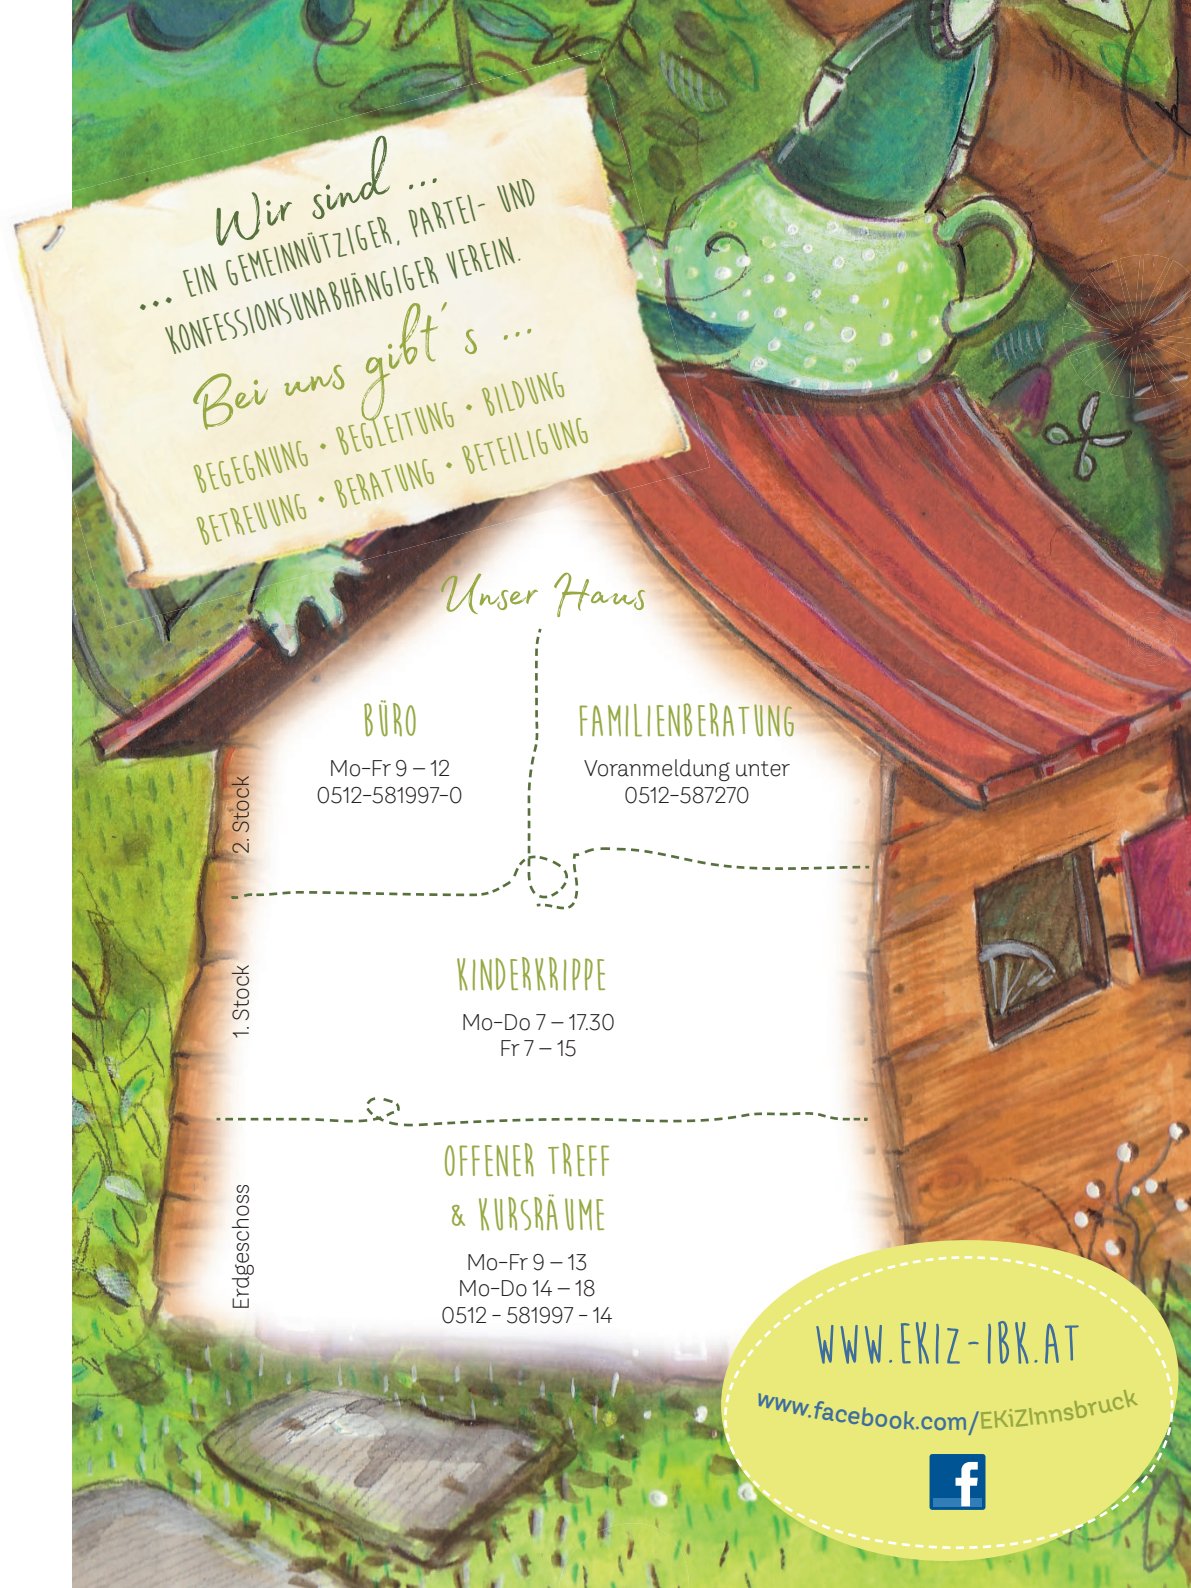 Wir sind ...
... EIN GEMEINNÜTZIGER, PARTEI- UND
KONFESSIONSUNABHÄNGIGER VEREIN.
Bei uns gibt´s ...
BEGEGNUNG • BEGLEITUNG • BILDUNG
BETREUUNG • BERATUNG • BETEILIGUNG
Unser Haus
2. Stock
BÜRO
Mo-Fr 9 – 12
0512-581997-0
FAMILIENBERATUNG
Voranmeldung unter
0512-587270
1. Stock
KINDERKRIPPE
Mo-Do 7 – 17.30
Fr 7 – 15
Erdgeschoss
OFFENER TREFF
& KURSRÄUME
Mo-Fr 9 – 13
Mo-Do 14 – 18
0512 - 581997 - 14
WWW.EKIZ-IBK.AT
www.facebook.com/EKiZInnsbruck
f